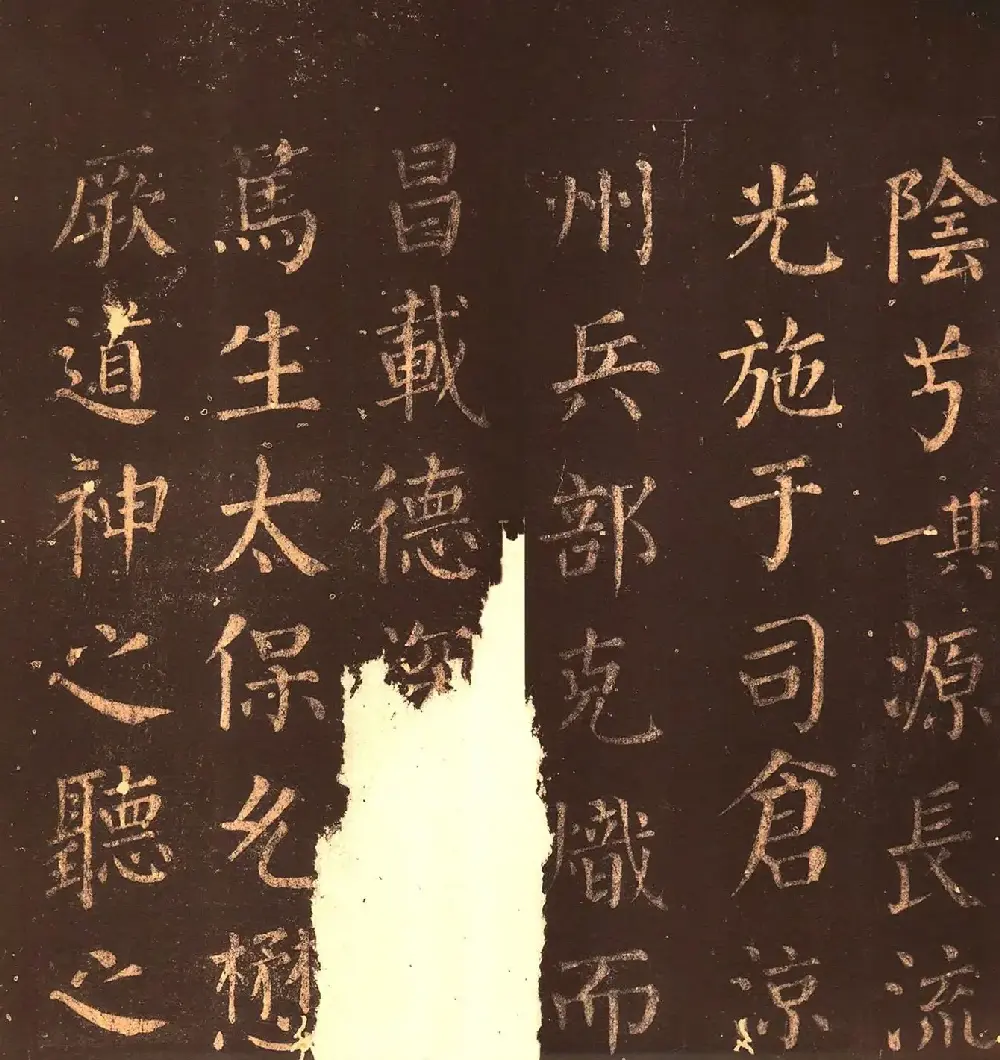 陰兮其一源長流
光施于司倉涼
州兵部克熾而
昌載德深
篤生太保允懋
厥道神之聽之